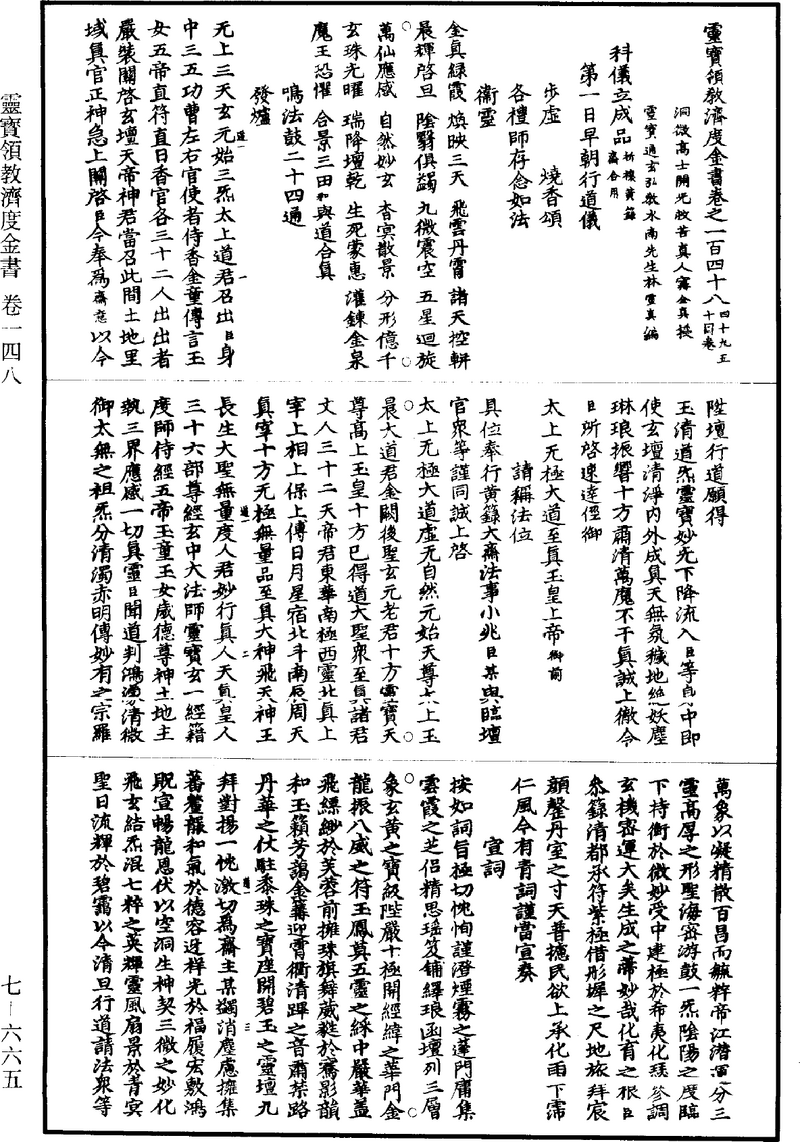 靈寶領教濟度金書卷之一百四十八四十九五十同卷
洞微高士開光救苦真人甯全真授
靈寶通玄弘教水南先生林靈真編
科儀立成品祈禳黃籙齋合用
第一日早朝行道儀
步虛　燒香頌
各禮師存念如法
衛靈
金真綠霞　煥映三天　飛雲丹霄　諸天控軿
晨輝啓旦　陰翳俱蠲　九微震空　五星迴旋
萬仙應感　自然妙玄　杳冥散景　分形億千
玄珠光曜　瑞降壇乾　生死蒙惠　灌鍊金泉
魔王恐懼　合景三田和與道合真
鳴法鼓二十四通
發爐
无上三天玄元始三炁太上道君召出臣身
中三五功曹左右官使者侍香金童傳言玉
女五帝直符直日香官各三十二人出出者
嚴裝關啓玄壇天帝神君當召此間土地里
域真官正神急上關啓臣今奉爲齋意以今
陞壇行道願得
玉清道炁靈寶妙光下降流入臣等身中即
使玄壇清淨內外成真天無氛穢地絕妖塵
琳琅振響十方肅清萬魔不干真誠上徹令
臣所啓速達徑御
太上无極大道至真玉皇上帝御前
請稱法位
具位奉行黃籙大齋法事小兆臣某與臨壇
官衆等謹同誠上啓
太上无極大道虛无自然元始天尊太上玉
晨大道君金闕後聖玄元老君十方靈寶天
尊高上玉皇十方已得道大聖衆至真諸君
丈人三十二天帝君東華南極西靈北真上
宰上相上保上傅日月星宿北斗南辰周天
真宰十方无極無量品至真大神飛天神王
長生大聖無量度人君妙行真人天真皇人
三十六部尊經玄中大法師靈寶玄一經籍
度師侍經五帝玉童玉女威德尊神土地主
執三界應感一切真靈臣聞道判鴻濛清微
御太無之祖炁分清濁赤明傳妙有之宗羅
萬象以凝精散百昌而毓粹帝江潛運分三
靈高厚之形聖海密游鼓一炁陰陽之度臨
下持衡於微妙受中建極於希夷化育參調
玄機密運大矣生成之蒂妙哉化育之根臣
忝籙清都承符紫極借彤墀之尺地旅拜宸
顏罄丹室之寸天普攄民欲上承化雨下霈
仁風今有青詞謹當宣奏
宣詞
按如詞旨極切忱恂謹澄煙霧之蓬門庸集
雲霞之芝侶精思瑤笈鋪繹琅函壇列三層
象玄黃之寶級陛嚴十極開經緯之華門金
龍振八威之符玉鳳奠五靈之綵中嚴華蓋
飛縹緲於芙蓉前擁珠旗舞葳蕤於鸞影韻
和玉籟芳藹金篝迎霄衢清蹕之音肅禁路
丹華之仗駐黍珠之寶座開碧玉之靈壇九
拜對揚一忱激切爲齋主某蠲消塵慮擁集
蕃釐贊和氣於德容迓祥光於福履宏敷鴻
貺宣暢龍恩伏以空洞生神契三微之妙化
飛玄結炁混七粹之英輝靈風扇景於青冥
聖日流輝於碧靄以今清旦行道請法衆等
靈寶領教濟度金書　卷一四八
七－六六五